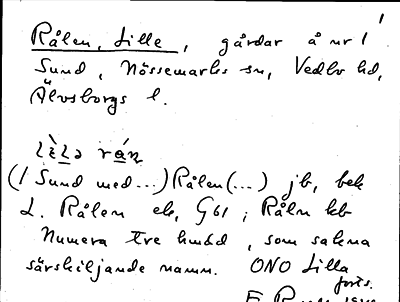 1
Rålen, Lille, gårdar å nr 1
Sund, Nössemarks sn, Vedbo hd,
Älvsborgs l.
(1 Sund med...) Rålen (...) jb, bek
L. Rålen ek, G61; Råln kb
Numera tre hmbd, som sakna
särskiljande namn. ONO Lilla
forts.